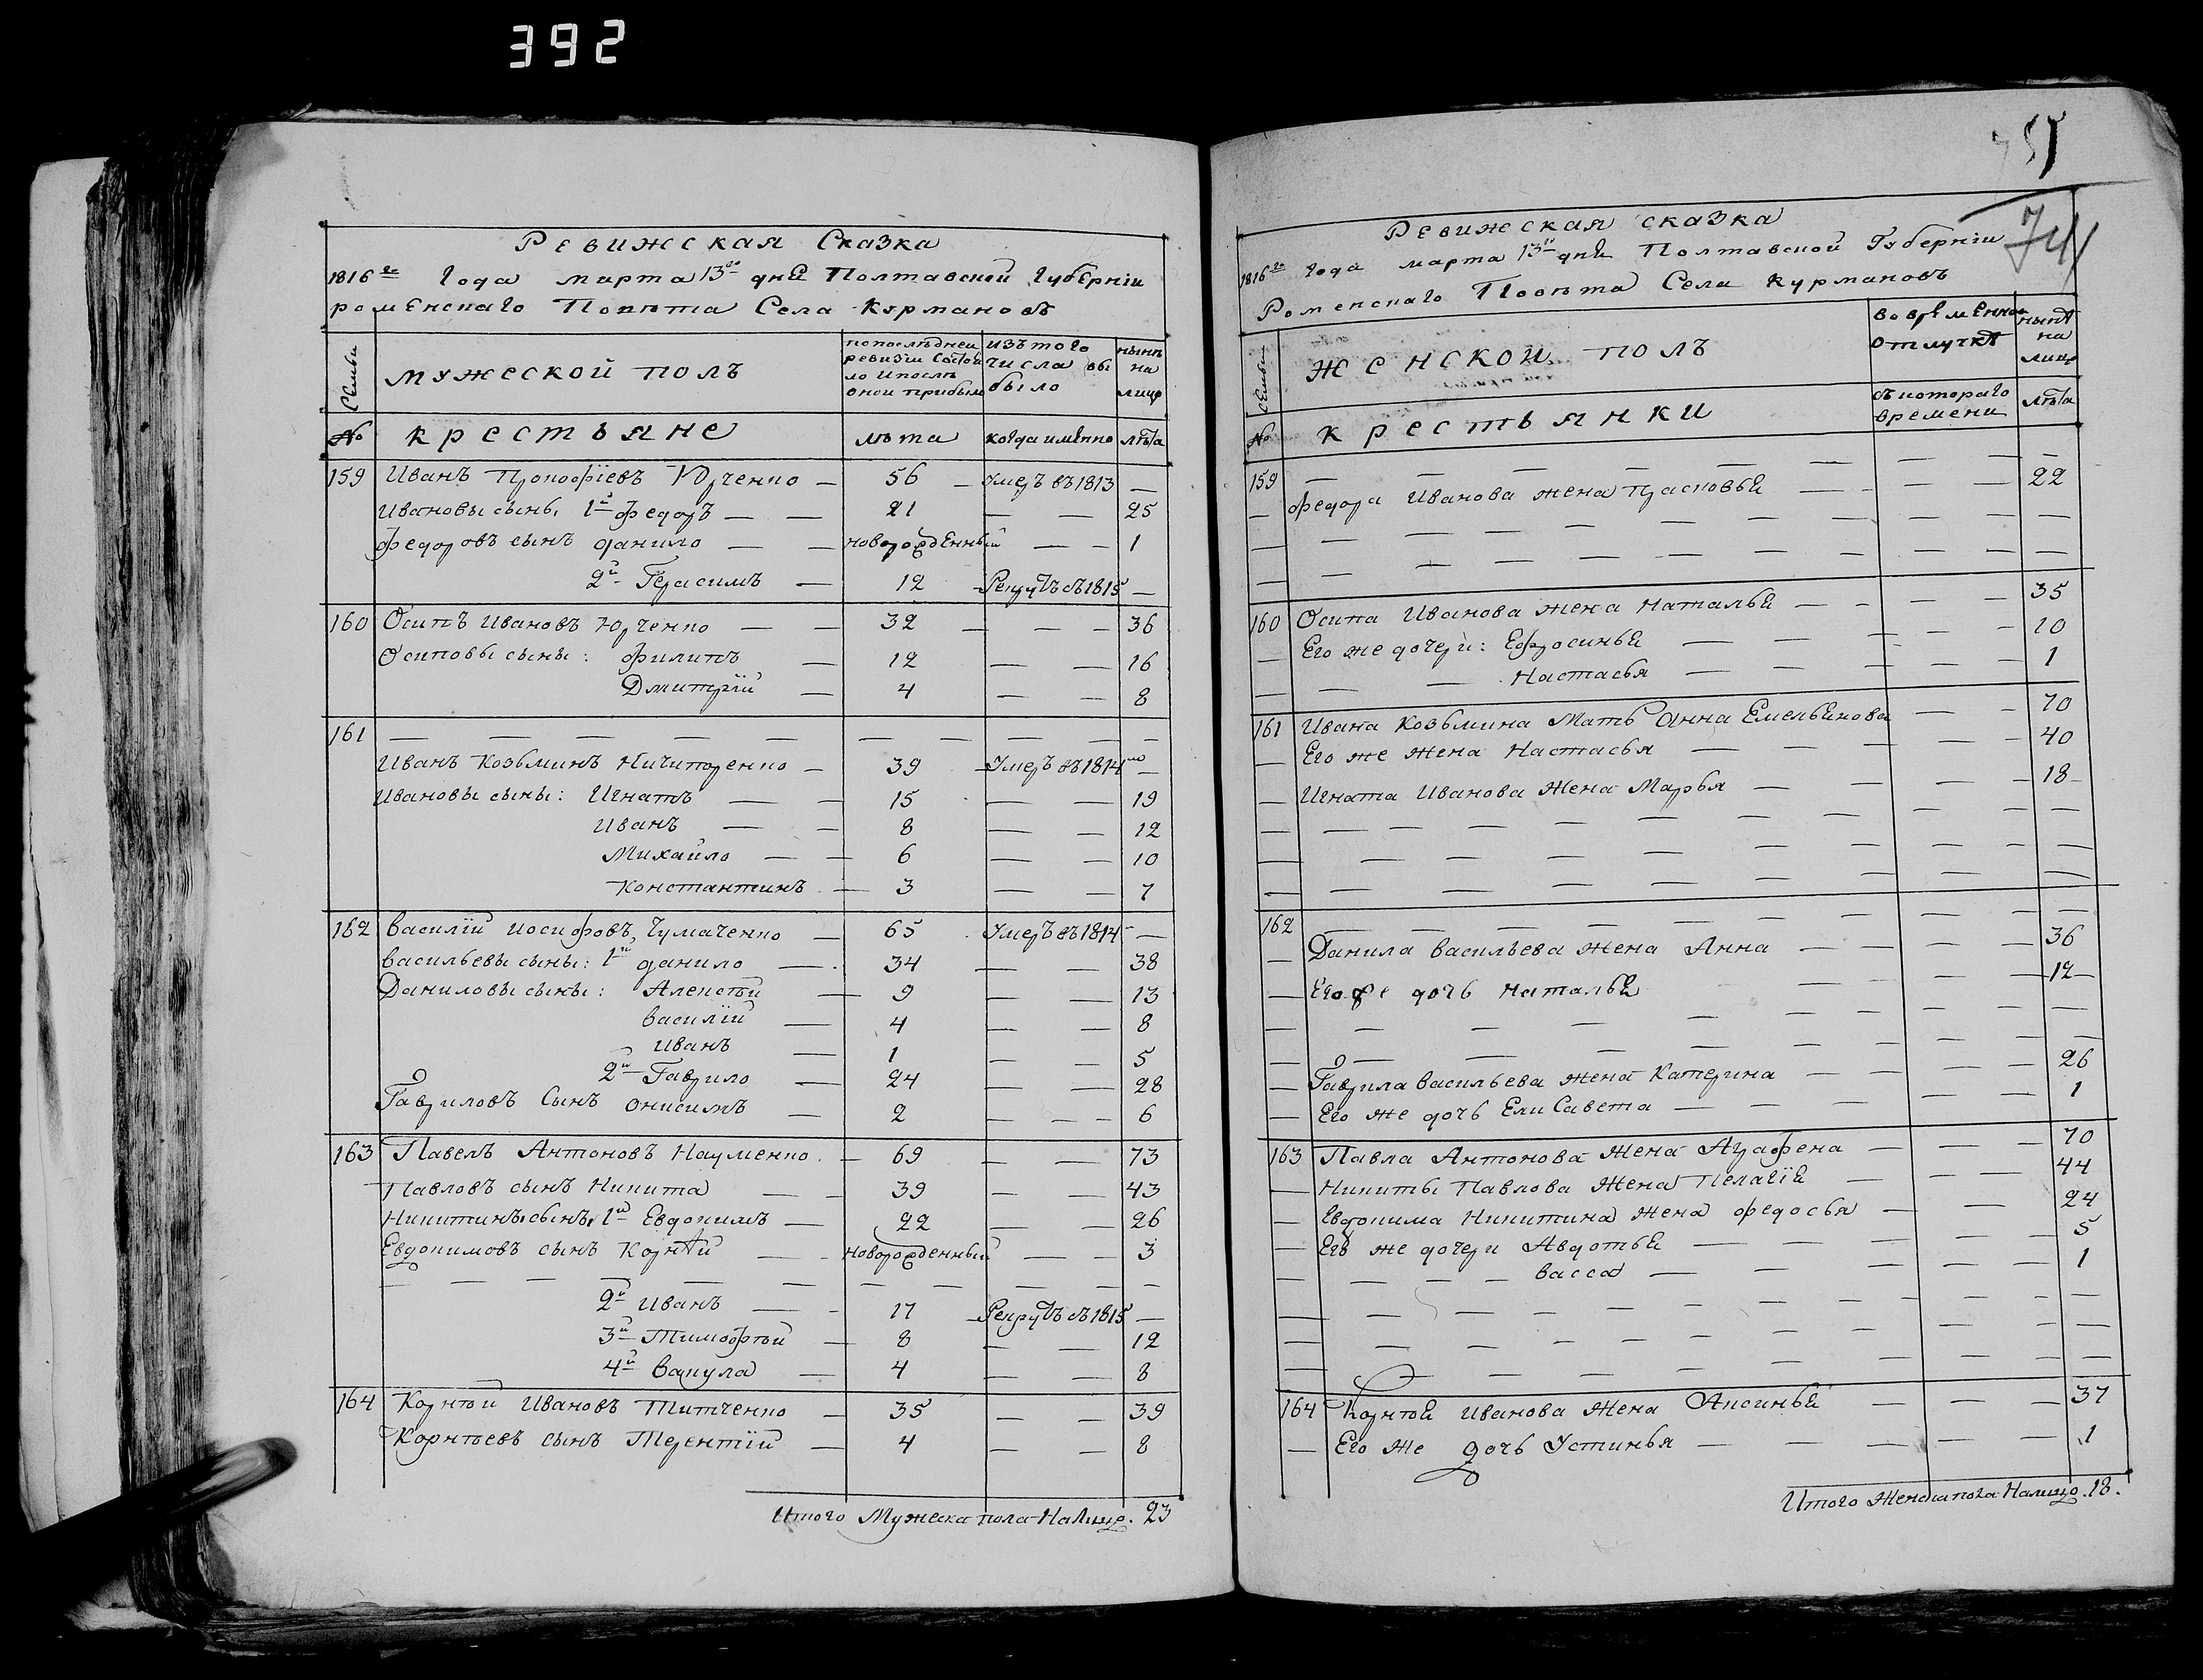 392
Ревижская Сказка
1816го Года марта 13го дня Полтавской Губерніи
роменскаго Повѣта Села Курмановъ
Семьи
мужеской полъ
попослѣдней ревизіи состояло и послѣ оной прибыло
изъ того числа выбыло
нынѣ на лицо
№
крестьяне
лѣта
когда имѣнно
лѣта
159 Иванъ Прокофіевъ Юрченко — 56 — Умеръ въ 1813 —
Ивановы сыны 1й федоръ — — 21 — — 25
федоровъ сынъ данило — — новорожденный — — 1
2й Герасимъ — 12 — Рекрутъ съ 1815 —
160 Осипъ Ивановъ Юрченко — — 32 — — — 36
Осиповы сыны: филипъ — 12 — — 16
Дмитрій — 4 — — 8
161 — — — — — — — — — —
Иванъ Козьминъ Ничипоренко — 39 — Умеръ въ 1814мъ —
Ивановы сыны: Игнатъ — — 15 — — 19
Иванъ — — 8 — — 12
Михайло — — 6 — — 10
Константинъ — 3 — — 7
162 василій иосифовъ Чумаченко — 65 Умеръ въ 1814 —
васильевы сыны: 1й данило — 34 — — 38
Даниловы сыны: Алексѣй — 9 — — 13
василій — 4 — — 8
иванъ — 1 — — 5
2й Гаврило — 24 — — 28
Гавриловъ Сынъ онисимъ — 2 — — — 6
163 Павелъ Антоновъ Науменко — 69 — — 73
Павловъ сынъ Никита — — 39 — — 43
Никитинъ сынъ, 1й Евдокимъ — 22 — — 26
Евдокимовъ сынъ Корнѣй — — новорожденный — — 3
— — — — — — — — — — — —
2й иванъ — — 17 — Рекрутъ съ 1815 —
3й Тимофѣй — 8 — — 12
4й вакула — 4 — — 8
164 Корнѣй Ивановъ Титченко — 35 — — 39
Корнѣевъ сынъ Терентій — 4 — — 8
Итого Мужеска пола На Лицо. 23
741
Ревижская сказка
1816го года марта 13го дня Полтавской Губерніи
Роменскаго Повѣта Села Курмановъ
Семьи
женской полъ
во врѣменной отлучкѣ
нынѣ на лицо
№
крестьянки
съ котораго времени
лѣта
159 — — — — — — — — —
— федора Иванова жена прасковья — — — — 22
— — — — — — — — —
— — — — — — — — —
160 Осипа Иванова жена Наталья — — — — 35
— Его же дочери: Ефросинья — — — — 10
— — — Настасья — — — — 1
161 Ивана Козьмина Мать Анна Емельянова — — 70
— Его же Жена Настасья — — — — 40
— Игната Иванова Жена Марья — — — — 18
— — — — — — — — —
— — — — — — — — —
— — — — — — — — —
162 — — — — — — — — —
— Данила васильева жена Анна — — — — 36
— Его же дочь Наталья — — — — 12
— — — — — — — — —
— — — — — — — — —
— Гаврила васильева жена Катерина — — — — 26
— Его же дочь ЕлиСавета — — — — 1
163 Павла Антонова жена Аграфена — — — 70
— Никиты Павлова жена Пелагія — — — 44
— Евдокима Никитина жена федосья — — 24
— Его же дочери Авдотья — — — — 5
— — — — васса — — — — 1
— — — — — — — — —
— — — — — — — — —
— — — — — — — — —
164 Корнѣй Иванова жена Аксинья — — — 37
— Его же дочь Устинья — — — — 1
Итого Женска пола Налицо. 18.